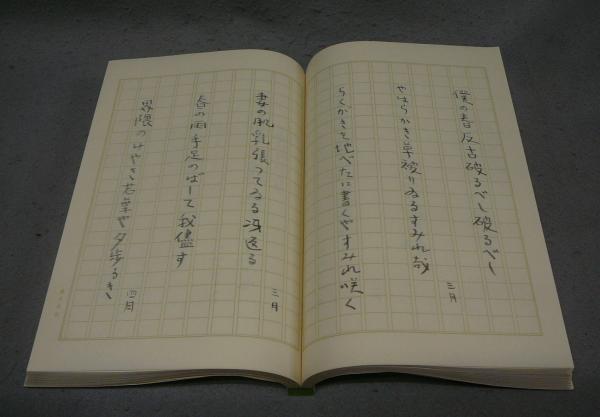 僕の春反古破るべし破るべし
やはらかき草被りゐるすみれ哉
三月
らくがきを地べたに書くやすみれ咲く
妻の肌乳張つてゐる冴返る
三月
春の雨手足のばして我儘す
界隈のけやき若葉や夕歩るき
四月